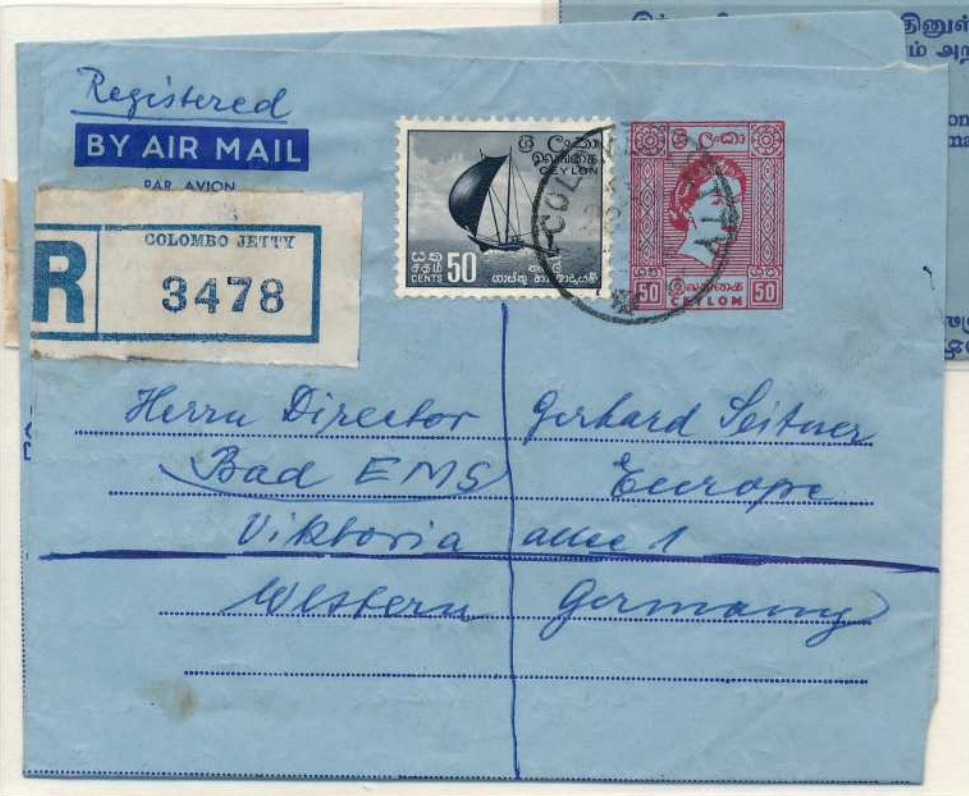 Registered
BY AIR MAIL
PAR AVION
R
COLOMBO JETTY
3478
ශ්‍රී ලංකා
இலங்கை
CEYLON
සත
சதம்
CENTS 50
COLOMBO JETTY
ශ්‍රී ලංකා
50 இலங்கை 50
CEYLON
Herrn Director Gerhard Seitner
Bad EMS Europe
Viktoria allee 1
Western Germany